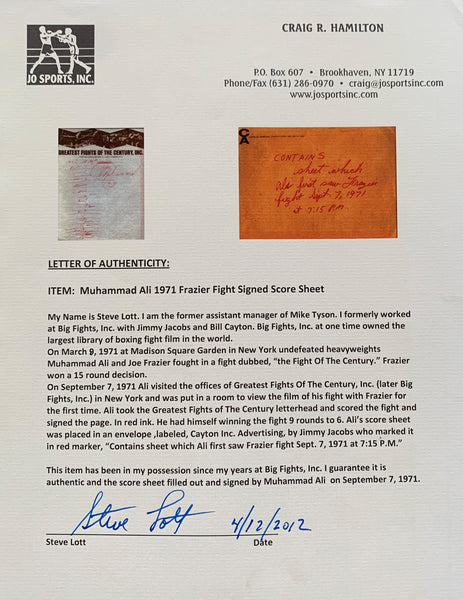 CRAIG R. HAMILTON
JO SPORTS, INC.
P.O. Box 607 • Brookhaven, NY 11719
Phone/Fax (631) 286-0970 • craig@josportsinc.com
www.josportsinc.com
GREATEST FIGHTS OF THE CENTURY, INC.
CA
CONTAINS
sheet which
Ali first saw Frazier
fight Sept. 7, 1971
at 7:15 P.M.
LETTER OF AUTHENTICITY:
ITEM: Muhammad Ali 1971 Frazier Fight Signed Score Sheet
My Name is Steve Lott. I am the former assistant manager of Mike Tyson. I formerly worked
at Big Fights, Inc. with Jimmy Jacobs and Bill Cayton. Big Fights, Inc. at one time owned the
largest library of boxing fight film in the world.
On March 9, 1971 at Madison Square Garden in New York undefeated heavyweights
Muhammad Ali and Joe Frazier fought in a fight dubbed, “the Fight Of The Century.” Frazier
won a 15 round decision.
On September 7, 1971 Ali visited the offices of Greatest Fights Of The Century, Inc. (later Big
Fights, Inc.) in New York and was put in a room to view the film of his fight with Frazier for
the first time. Ali took the Greatest Fights of The Century letterhead and scored the fight and
signed the page. In red ink. He had himself winning the fight 9 rounds to 6. Ali’s score sheet
was placed in an envelope ,labeled, Cayton Inc. Advertising, by Jimmy Jacobs who marked it
in red marker, “Contains sheet which Ali first saw Frazier fight Sept. 7, 1971 at 7:15 P.M.”
This item has been in my possession since my years at Big Fights, Inc. I guarantee it is
authentic and the score sheet filled out and signed by Muhammad Ali on September 7, 1971.
Steve Lott 4/12/2012
Steve Lott Date